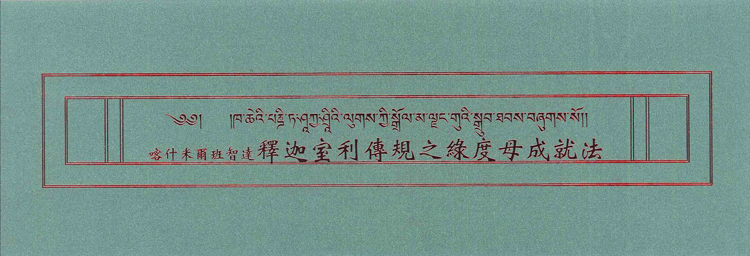 ༄༅། །ཁ་ཆེའི་པཎྜི་ཏ་ཤཱཀྱ་ཤྲཱིའི་ལུགས་ཀྱི་སྒྲོལ་མ་ལྗང་གུའི་སྒྲུབ་ཐབས་བཞུགས་སོ།།
喀什米爾班智達釋迦室利傳規之綠度母成就法